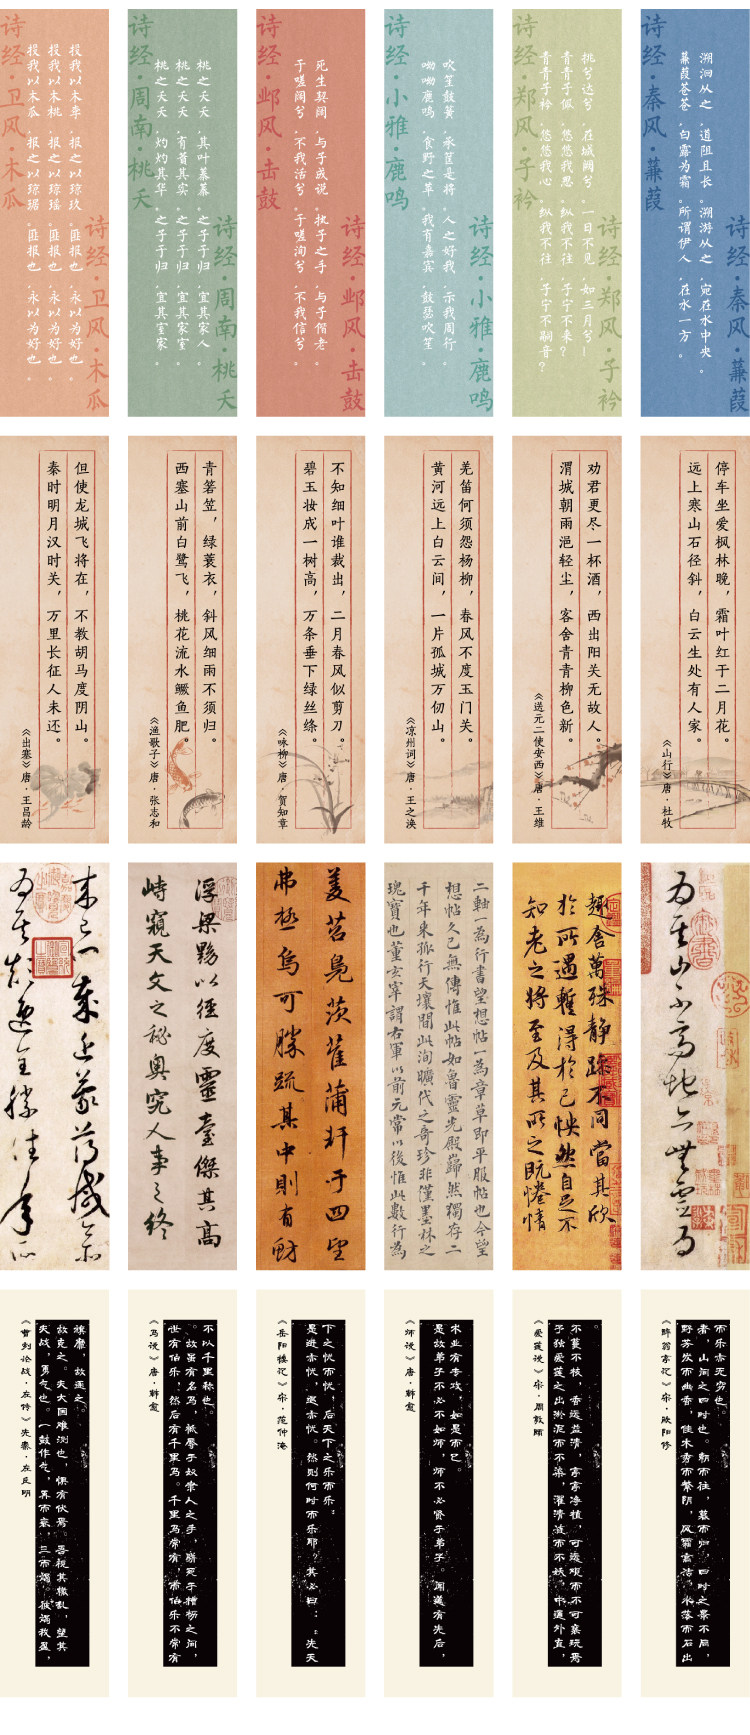 诗经·卫风·木瓜
投我以木瓜，报之以琼琚。匪报也，永以为好也。
投我以木桃，报之以琼瑶。匪报也，永以为好也。
投我以木李，报之以琼玖。匪报也，永以为好也。
诗经·卫风·木瓜
诗经·周南·桃夭
桃之夭夭，灼灼其华。之子于归，宜其室家。
桃之夭夭，有蕡其实。之子于归，宜其家室。
桃之夭夭，其叶蓁蓁。之子于归，宜其家人。
诗经·周南·桃夭
诗经·邶风·击鼓
死生契阔，与子成说。执子之手，与子偕老。
于嗟阔兮，不我活兮。于嗟洵兮，不我信兮。
诗经·邶风·击鼓
诗经·小雅·鹿鸣
呦呦鹿鸣，食野之苹。我有嘉宾，鼓瑟吹笙。
吹笙鼓簧，承筐是将。人之好我，示我周行。
诗经·小雅·鹿鸣
诗经·郑风·子衿
青青子衿，悠悠我心。纵我不往，子宁不嗣音？
青青子佩，悠悠我思。纵我不往，子宁不来？
挑兮达兮，在城阙兮。一日不见，如三月兮！
诗经·郑风·子衿
诗经·秦风·蒹葭
蒹葭苍苍，白露为霜。所谓伊人，在水一方。
溯洄从之，道阻且长。溯游从之，宛在水中央。
诗经·秦风·蒹葭
秦时明月汉时关，万里长征人未还。
但使龙城飞将在，不教胡马度阴山。
《出塞》唐·王昌龄
西塞山前白鹭飞，桃花流水鳜鱼肥。
青箬笠，绿蓑衣，斜风细雨不须归。
《渔歌子》唐·张志和
碧玉妆成一树高，万条垂下绿丝绦。
不知细叶谁裁出，二月春风似剪刀。
《咏柳》唐·贺知章
黄河远上白云间，一片孤城万仞山。
羌笛何须怨杨柳，春风不度玉门关。
《凉州词》唐·王之涣
渭城朝雨浥轻尘，客舍青青柳色新。
劝君更尽一杯酒，西出阳关无故人。
《送元二使安西》唐·王维
远上寒山石径斜，白云生处有人家。
停车坐爱枫林晚，霜叶红于二月花。
《山行》唐·杜牧
浮梁黟以經度靈臺傑其高
峙窺天文之秘奧究人事之終
于四望
弗極烏可勝疏其中則有
二軸一為行書望想帖一為章草即平服帖也今望
想帖久已無傳惟此帖如魯靈光殿巋然獨存二
千年來孤行天壤間此洵曠代之奇珍非僅墨林之
瑰寶也董玄宰謂右軍以前元常以後惟此數行為
趣舍萬殊静躁不同當其欣
於所遇暫得於己怏然自足不
知老之將至及其所之既惓情
山不高地亦無靈為
夫战，勇气也。一鼓作气，再而衰，三而竭。彼竭我盈，
故克之。夫大国难测也，惧有伏焉。吾视其辙乱，望其
旗靡，故逐之。
《曹刿论战·左传》先秦·左丘明
世有伯乐，然后有千里马。千里马常有，而伯乐不常有
。故虽有名马，祗辱于奴隶人之手，骈死于槽枥之间，
不以千里称也。
《马说》唐·韩愈
是进亦忧，退亦忧。然则何时而乐耶？其必曰：：先天
下之忧而忧，后天下之乐而乐：
《岳阳楼记》宋·范仲淹
是故弟子不必不如师，师不必贤于弟子。闻道有先后，
术业有专攻，如是而已。
《师说》唐·韩愈
予独爱莲之出淤泥而不染，濯清涟而不妖，中通外直，
不蔓不枝，香远益清，亭亭净植，可远观而不可亵玩焉
。
《爱莲说》宋·周敦颐
野芳发而幽香，佳木秀而繁阴，风霜高洁，水落而石出
者，山间之四时也。朝而往，暮而归，四时之景不同，
而乐亦无穷也。
《醉翁亭记》宋·欧阳修